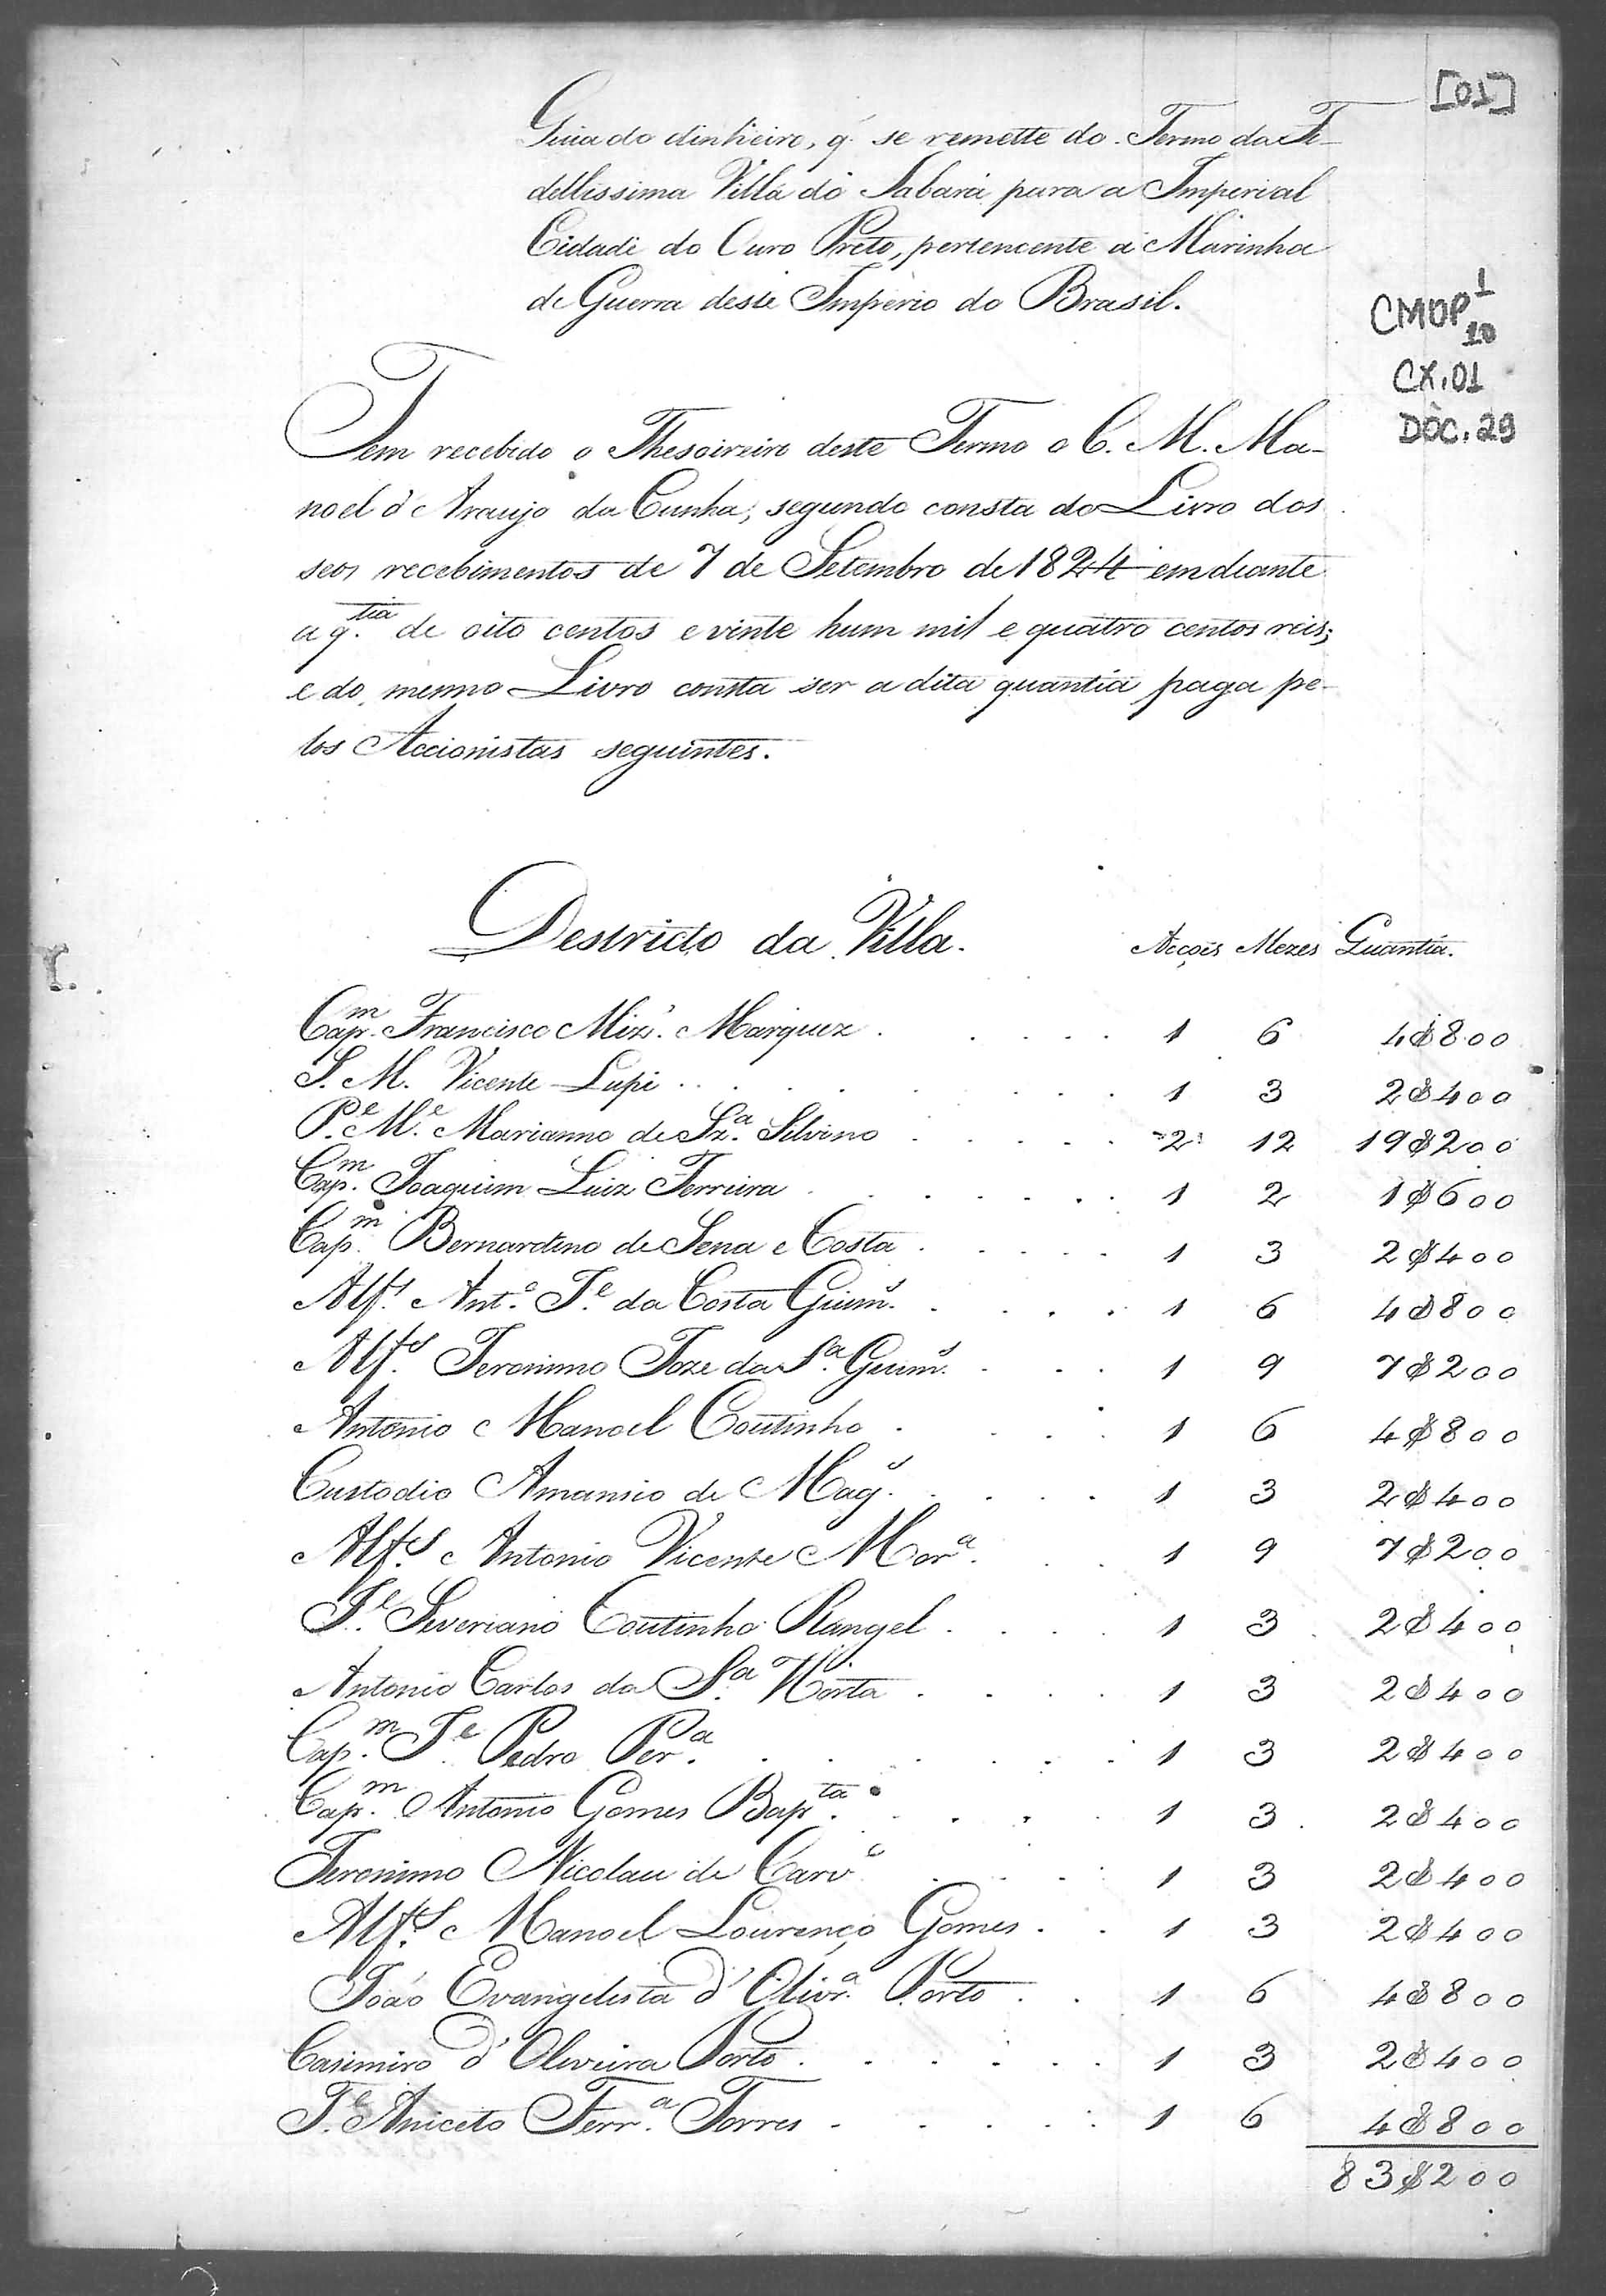 [01]
Guia do dinheiro, q̃ se remette do Termo da Fi-
dellissima Villa do Sabará para a Imperial
Cidade do Ouro Preto, pertencente á Marinha
de Guerra deste Imperio do Brasil.
CMOP 1
10
CX.01
DOC.29
Tem recebido o Thesoireiro deste Termo o C. M. Ma-
noel d'Araujo da Cunha, segundo consta do Livro dos
seos recebimentos de 7 de Setembro de 1824 em deante
a q.tia de oito centos e vinte hum mil e quatro centos reis;
e do mesmo Livro consta ser a dita quantia paga pe-
los Accionistas seguintes.
Destricto da Villa. Acções Mezes Quantia.
Cap.m Francisco Miz'. Marquez 1 6 4$800
S. M. Vicente Lupi 1 3 2$400
P.e M.e Marianno de Sz.a Silvino 2 12 19$200
Cap.m Joaquim Luiz Ferreira 1 2 1$600
Cap.m Bernardino de Sena e Costa 1 3 2$400
Alf.s Ant.o J.e da Costa Guim.s 1 6 4$800
Alf.es Jeronimo Joze da S.a Guim.s 1 9 7$200
Antonio Manoel Coutinho 1 6 4$800
Custodio Amancio de Mag.s 1 3 2$400
Alf.es Antonio Vicente Mor.a 1 9 7$200
J.e Severiano Coutinho Rangel 1 3 2$400
Antonio Carlos da S.a Horta 1 3 2$400
Cap.m J.e Pedro Per.a 1 3 2$400
Cap.m Antonio Gomes Bap.ta 1 3 2$400
Jeronimo Nicolau de Carv.o 1 3 2$400
Alf.es Manoel Lourenço Gomes 1 3 2$400
João Evangelista d'Olivr.a Porto 1 6 4$800
Casimiro d'Oliveira Porto 1 3 2$400
J.e Aniceto Ferr.a Torres 1 6 4$800
83$200